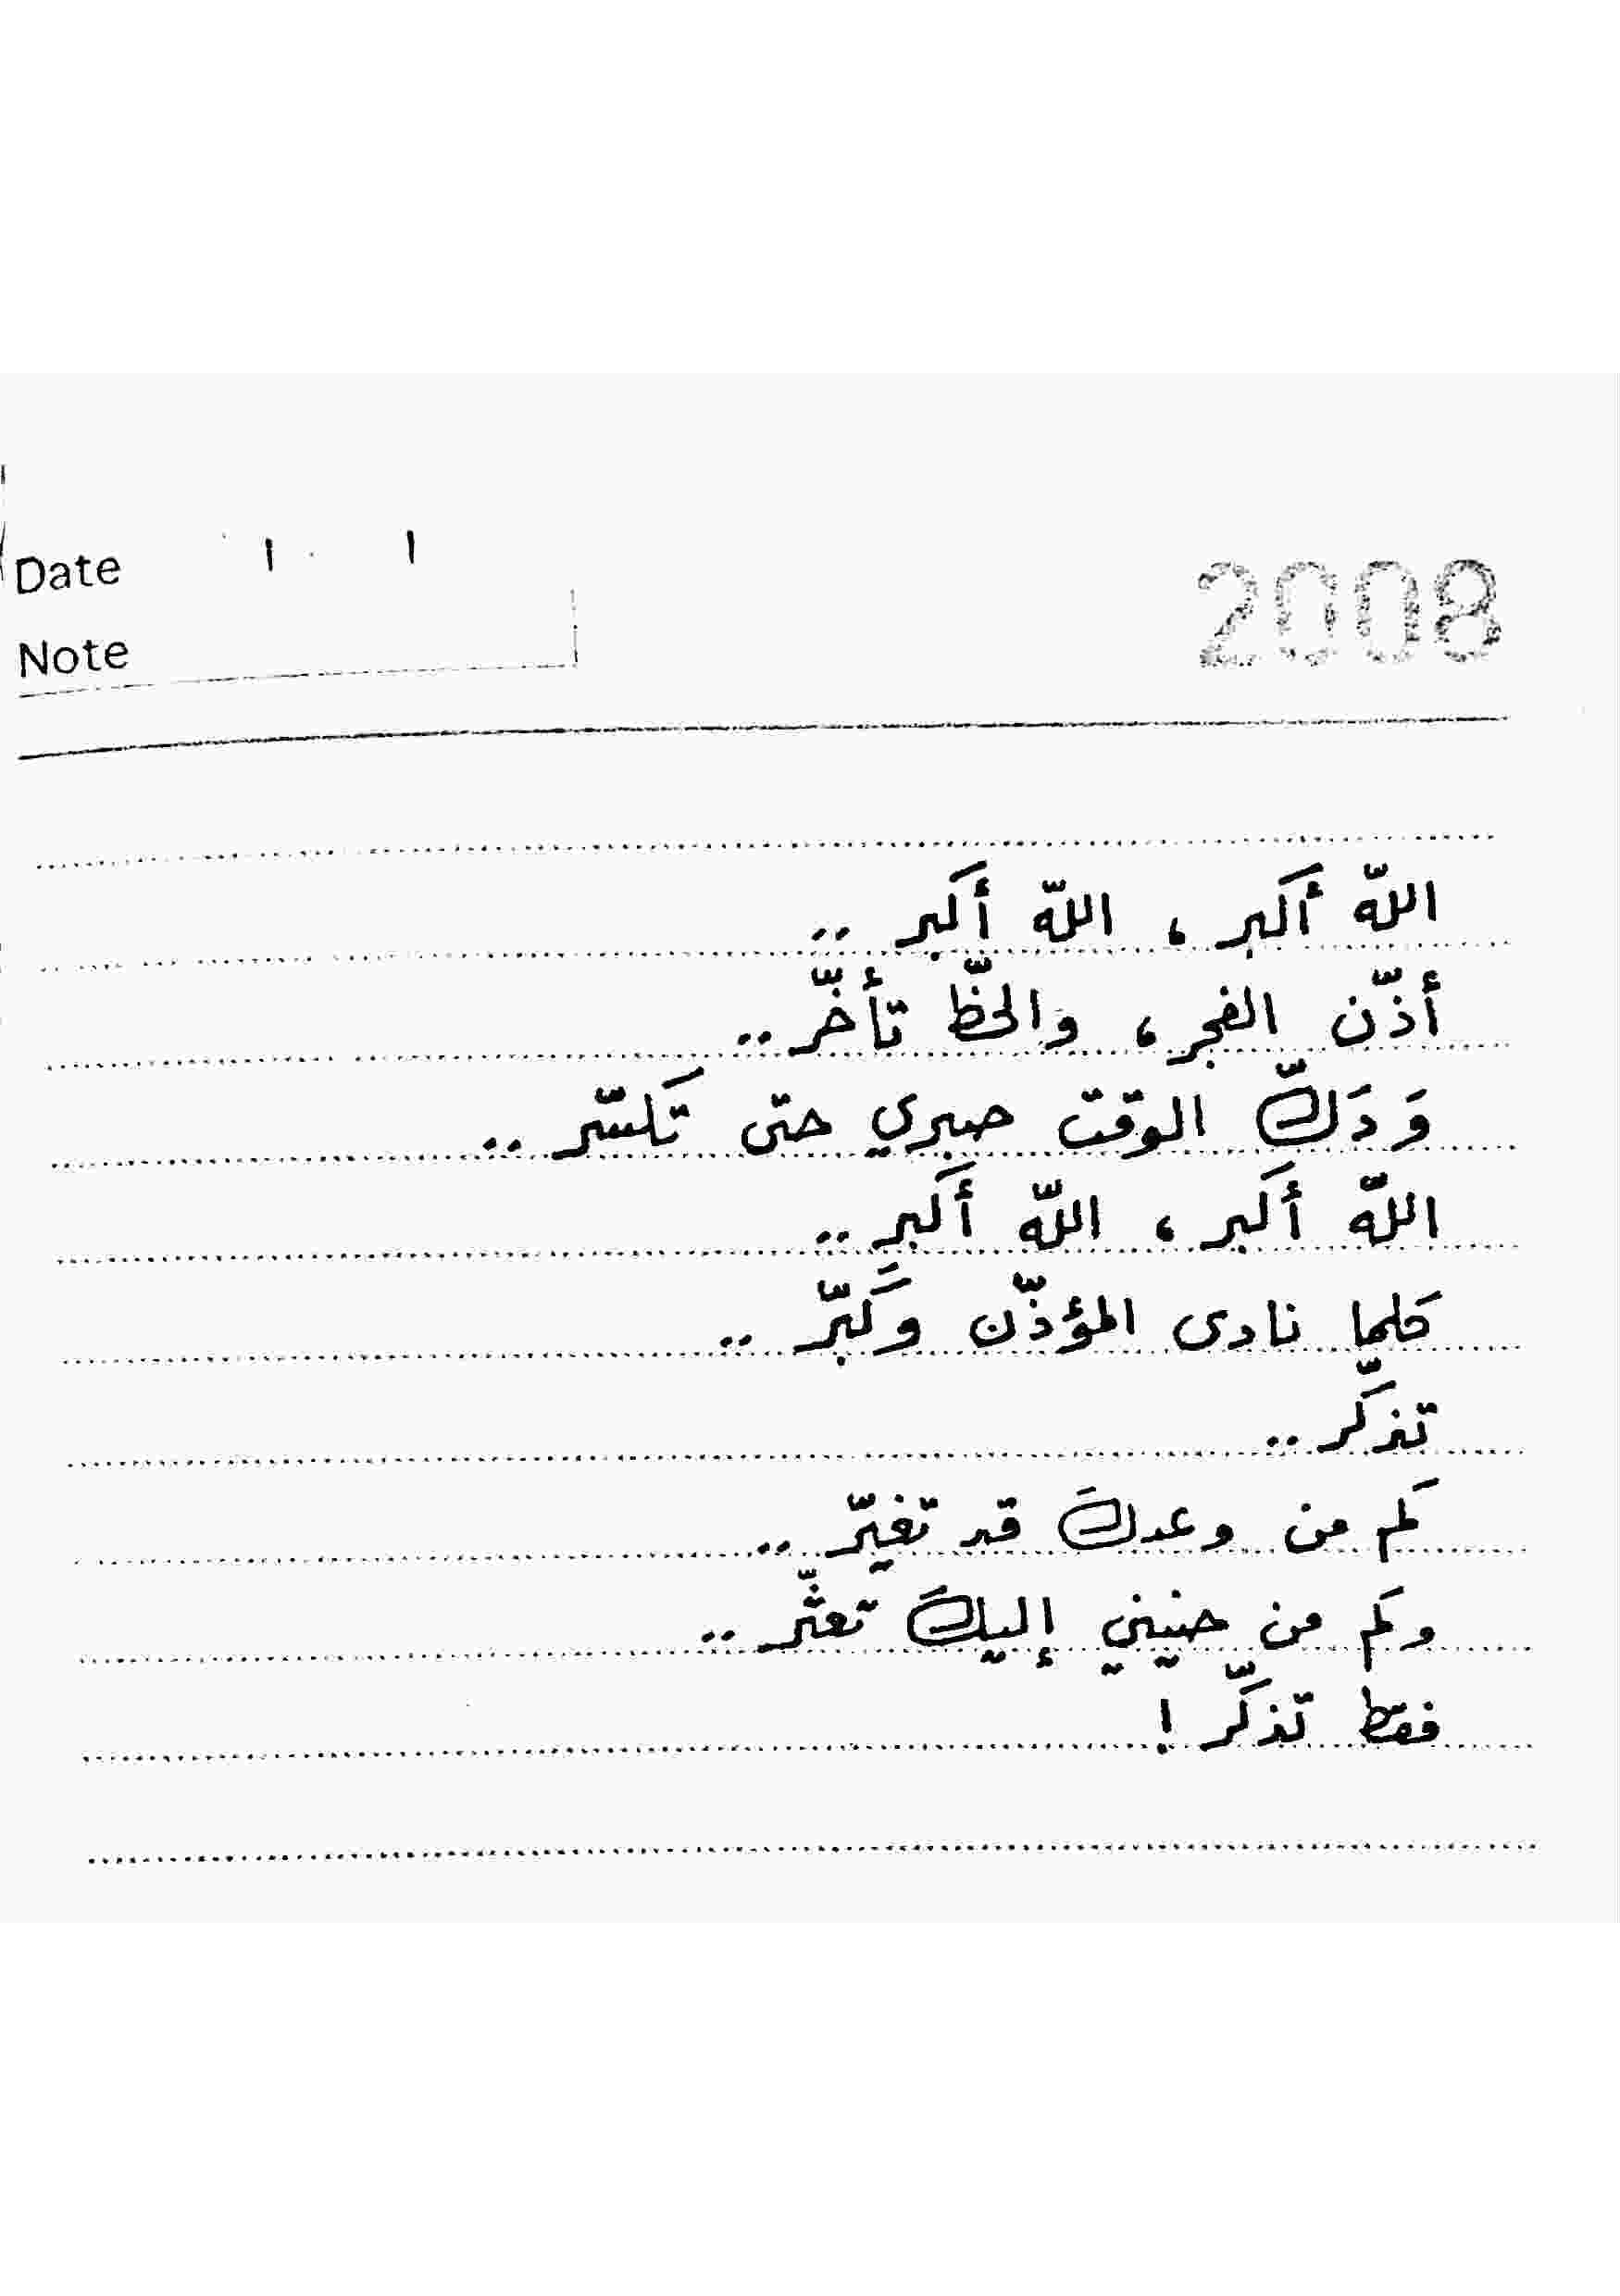 Date / /
2008
Note
اللّه أكبر ، اللّه أكبر ..
أذّن الفجر ، والحظّ تأخّر ..
وَ دَكّ الوقت صبري حتى تكسّر ..
اللّه أكبر ، اللّه أكبر ..
كلما نادى المؤذّن وكبّر ..
تذكّر ..
كم من وعدكَ قد تغيّر ..
وكم من حنيني إليكَ تعثّر ..
فقط تذكّر !